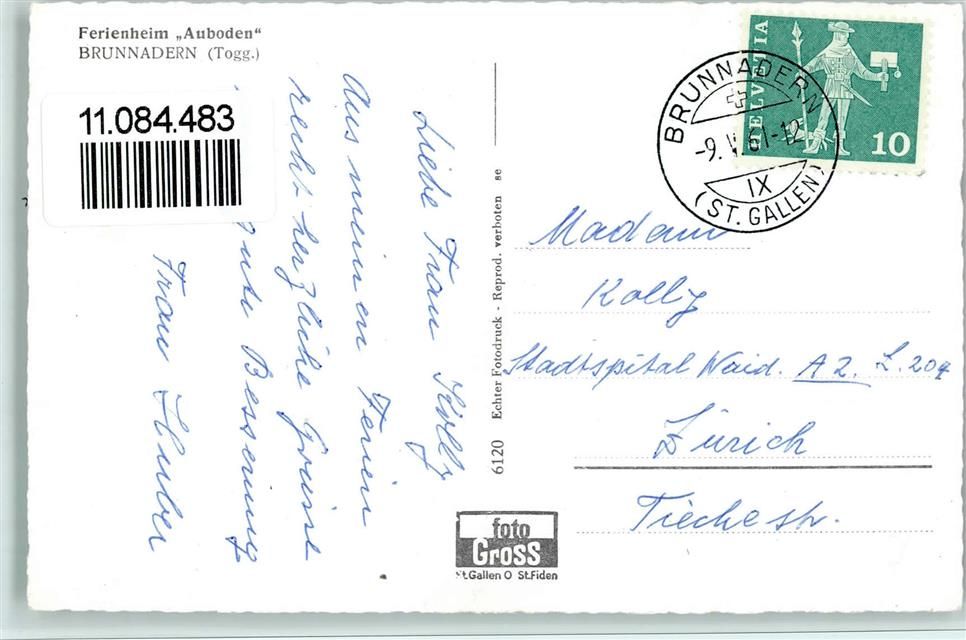 Ferienheim „Auboden"
BRUNNADERN (Togg.)
11.084.483
Liebe Frau Kolly
Aus meinen Ferien
recht herzliche Grüsse
gute Besserung
Frau Huber
6120 Echter Fotodruck - Reprod. verboten se
foto
Gross
St.Gallen O St.Fiden
HELVETIA
10
BRUNNADERN
-9. V. 61-12
IX
(ST. GALLEN)
Madame
Kolly
Stadtspital Waid. A2. Z. 204
Zürich
Tièchestr.